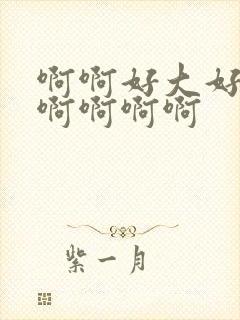 啊啊好大好
啊啊啊啊
紫一月